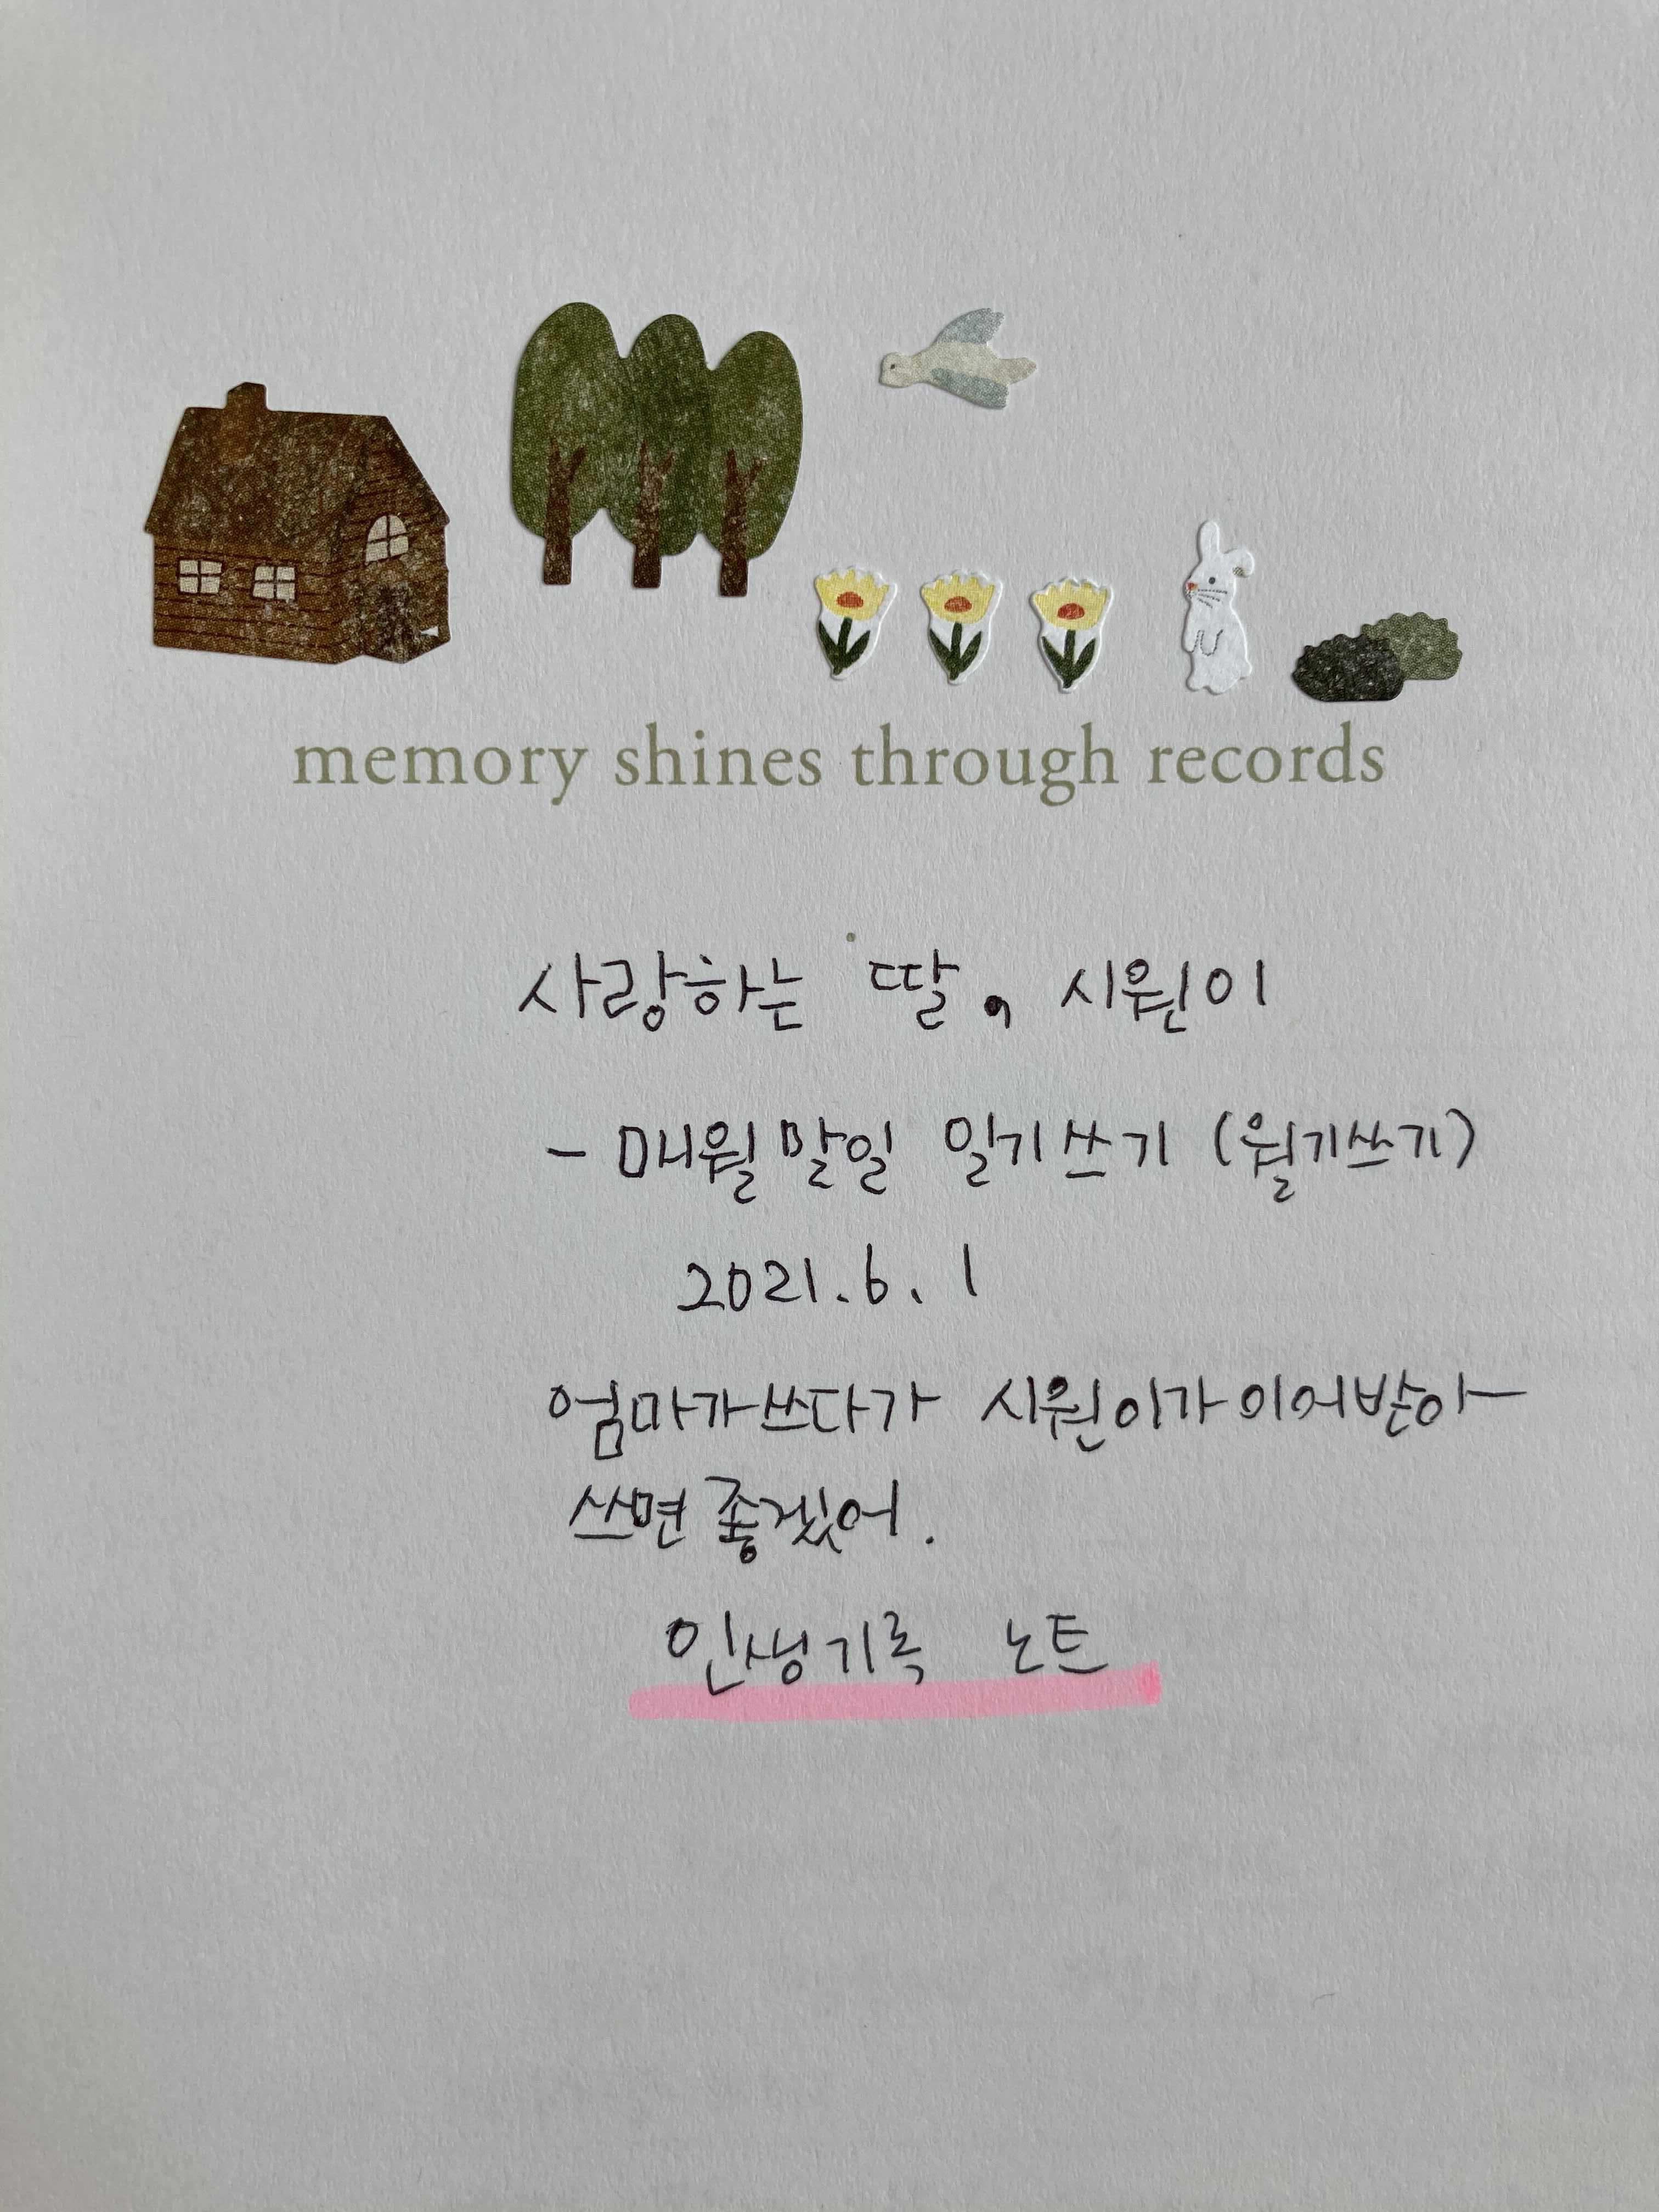 memory shines through records
사랑하는 딸, 시원이
- 매월말일 일기쓰기 (월기쓰기)
2021. 6. 1
엄마가쓰다가 시원이가이어받아
쓰면 좋겠어.
인생기록 노트